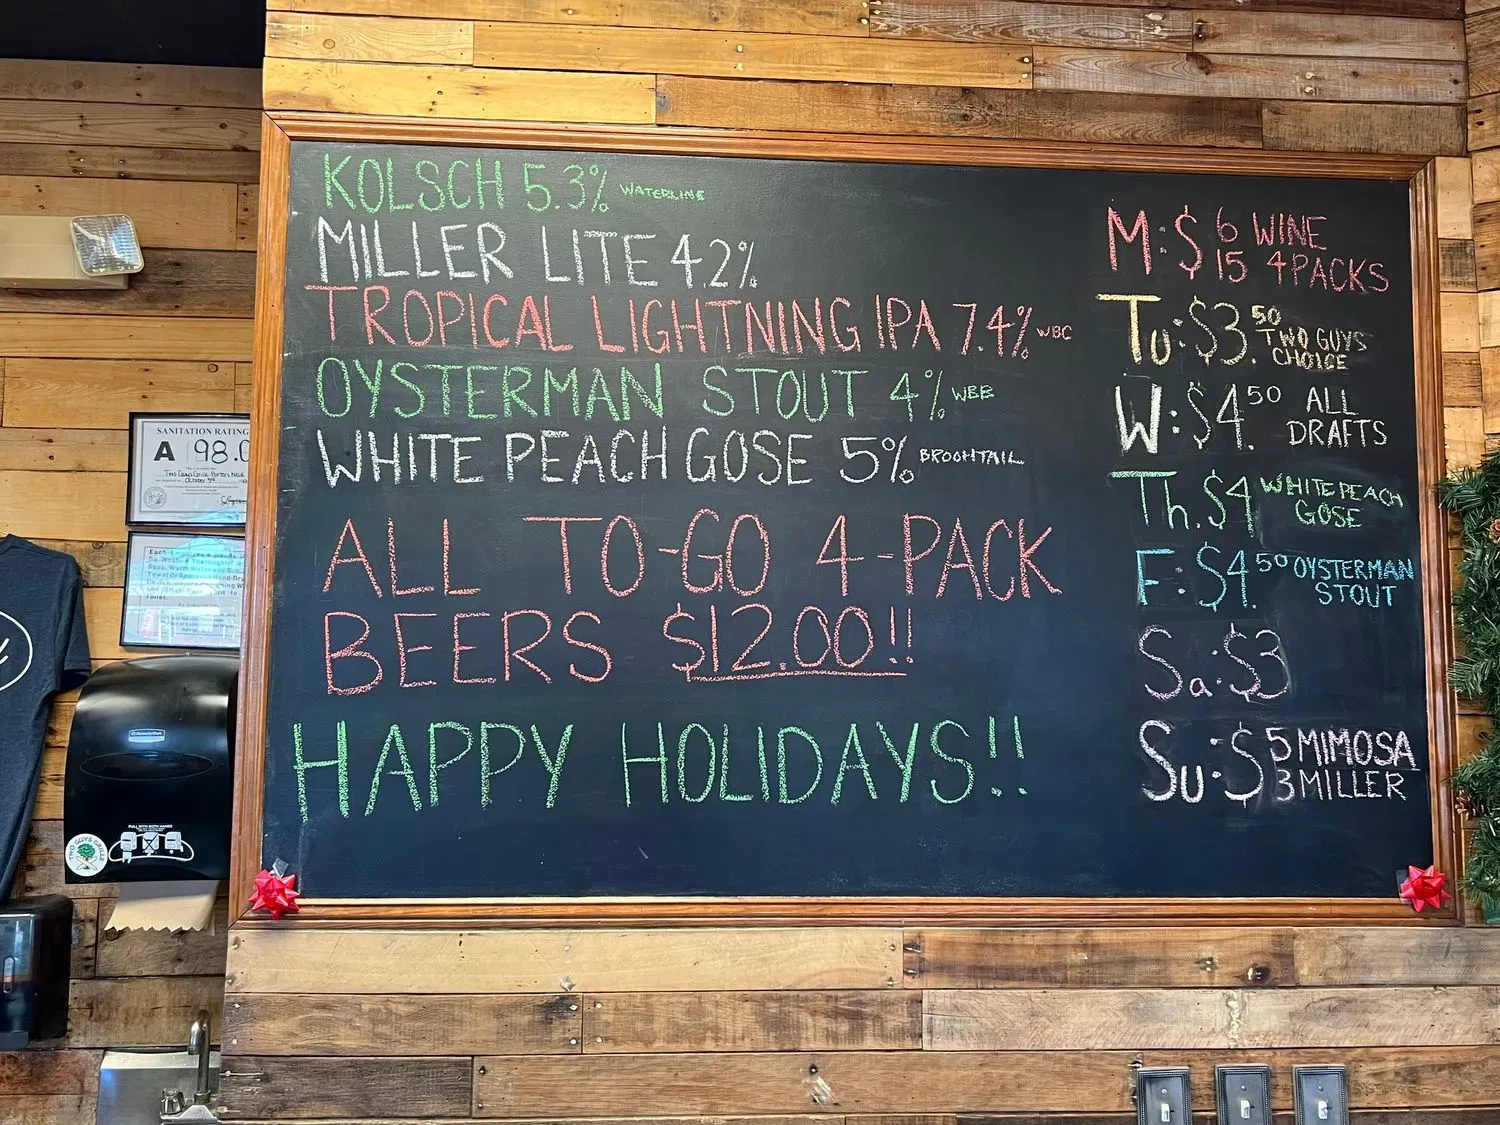 KOLSCH 5.3% WATERLINE
MILLER LITE 4.2%
TROPICAL LIGHTNING IPA 7.4% WBC
OYSTERMAN STOUT 4% WBB
WHITE PEACH GOSE 5% BROOHTAIL
ALL TO-GO 4-PACK
BEERS $12.00!!
HAPPY HOLIDAYS!!
M: $ 6 WINE
15 4PACKS
Tu: $3.50 TWO GUYS
CHOICE
W: $4.50 ALL
DRAFTS
Th. $4 WHITE PEACH
GOSE
F: $4.50 OYSTERMAN
STOUT
Sa: $3
Su: $ 5 MIMOSA
3 MILLER
SANITATION RATING
A 98.0
Two Guys Grille Porters Neck
October
Each Employee
PULL WITH BOTH HANDS
TWO GUYS GRILLE